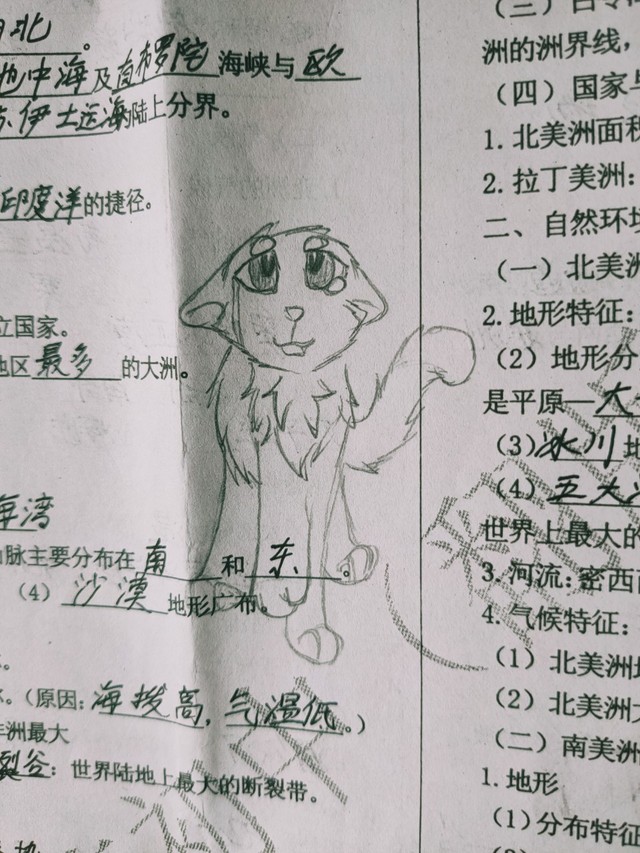 北。
地中海及直布罗陀海峡与欧
苏伊士运海陆上分界。
印度洋的捷径。
立国家。
地区最多的大洲。
海湾
脉主要分布在南和东。
(4)沙漠地形广布。
。(原因:海拨高,气温低。)
洲最大
裂谷:世界陆地上最大的断裂带。
洲的洲界线,
(四)国家与
1.北美洲面积
2.拉丁美洲:
二、自然环境
(一)北美洲
2.地形特征:
(2)地形分
是平原—大
(3)冰川地
(4)五大
世界上最大的
3.河流:密西西
4.气候特征:
(1)北美洲地
(2)北美洲大
(二)南美洲
1.地形
(1)分布特征